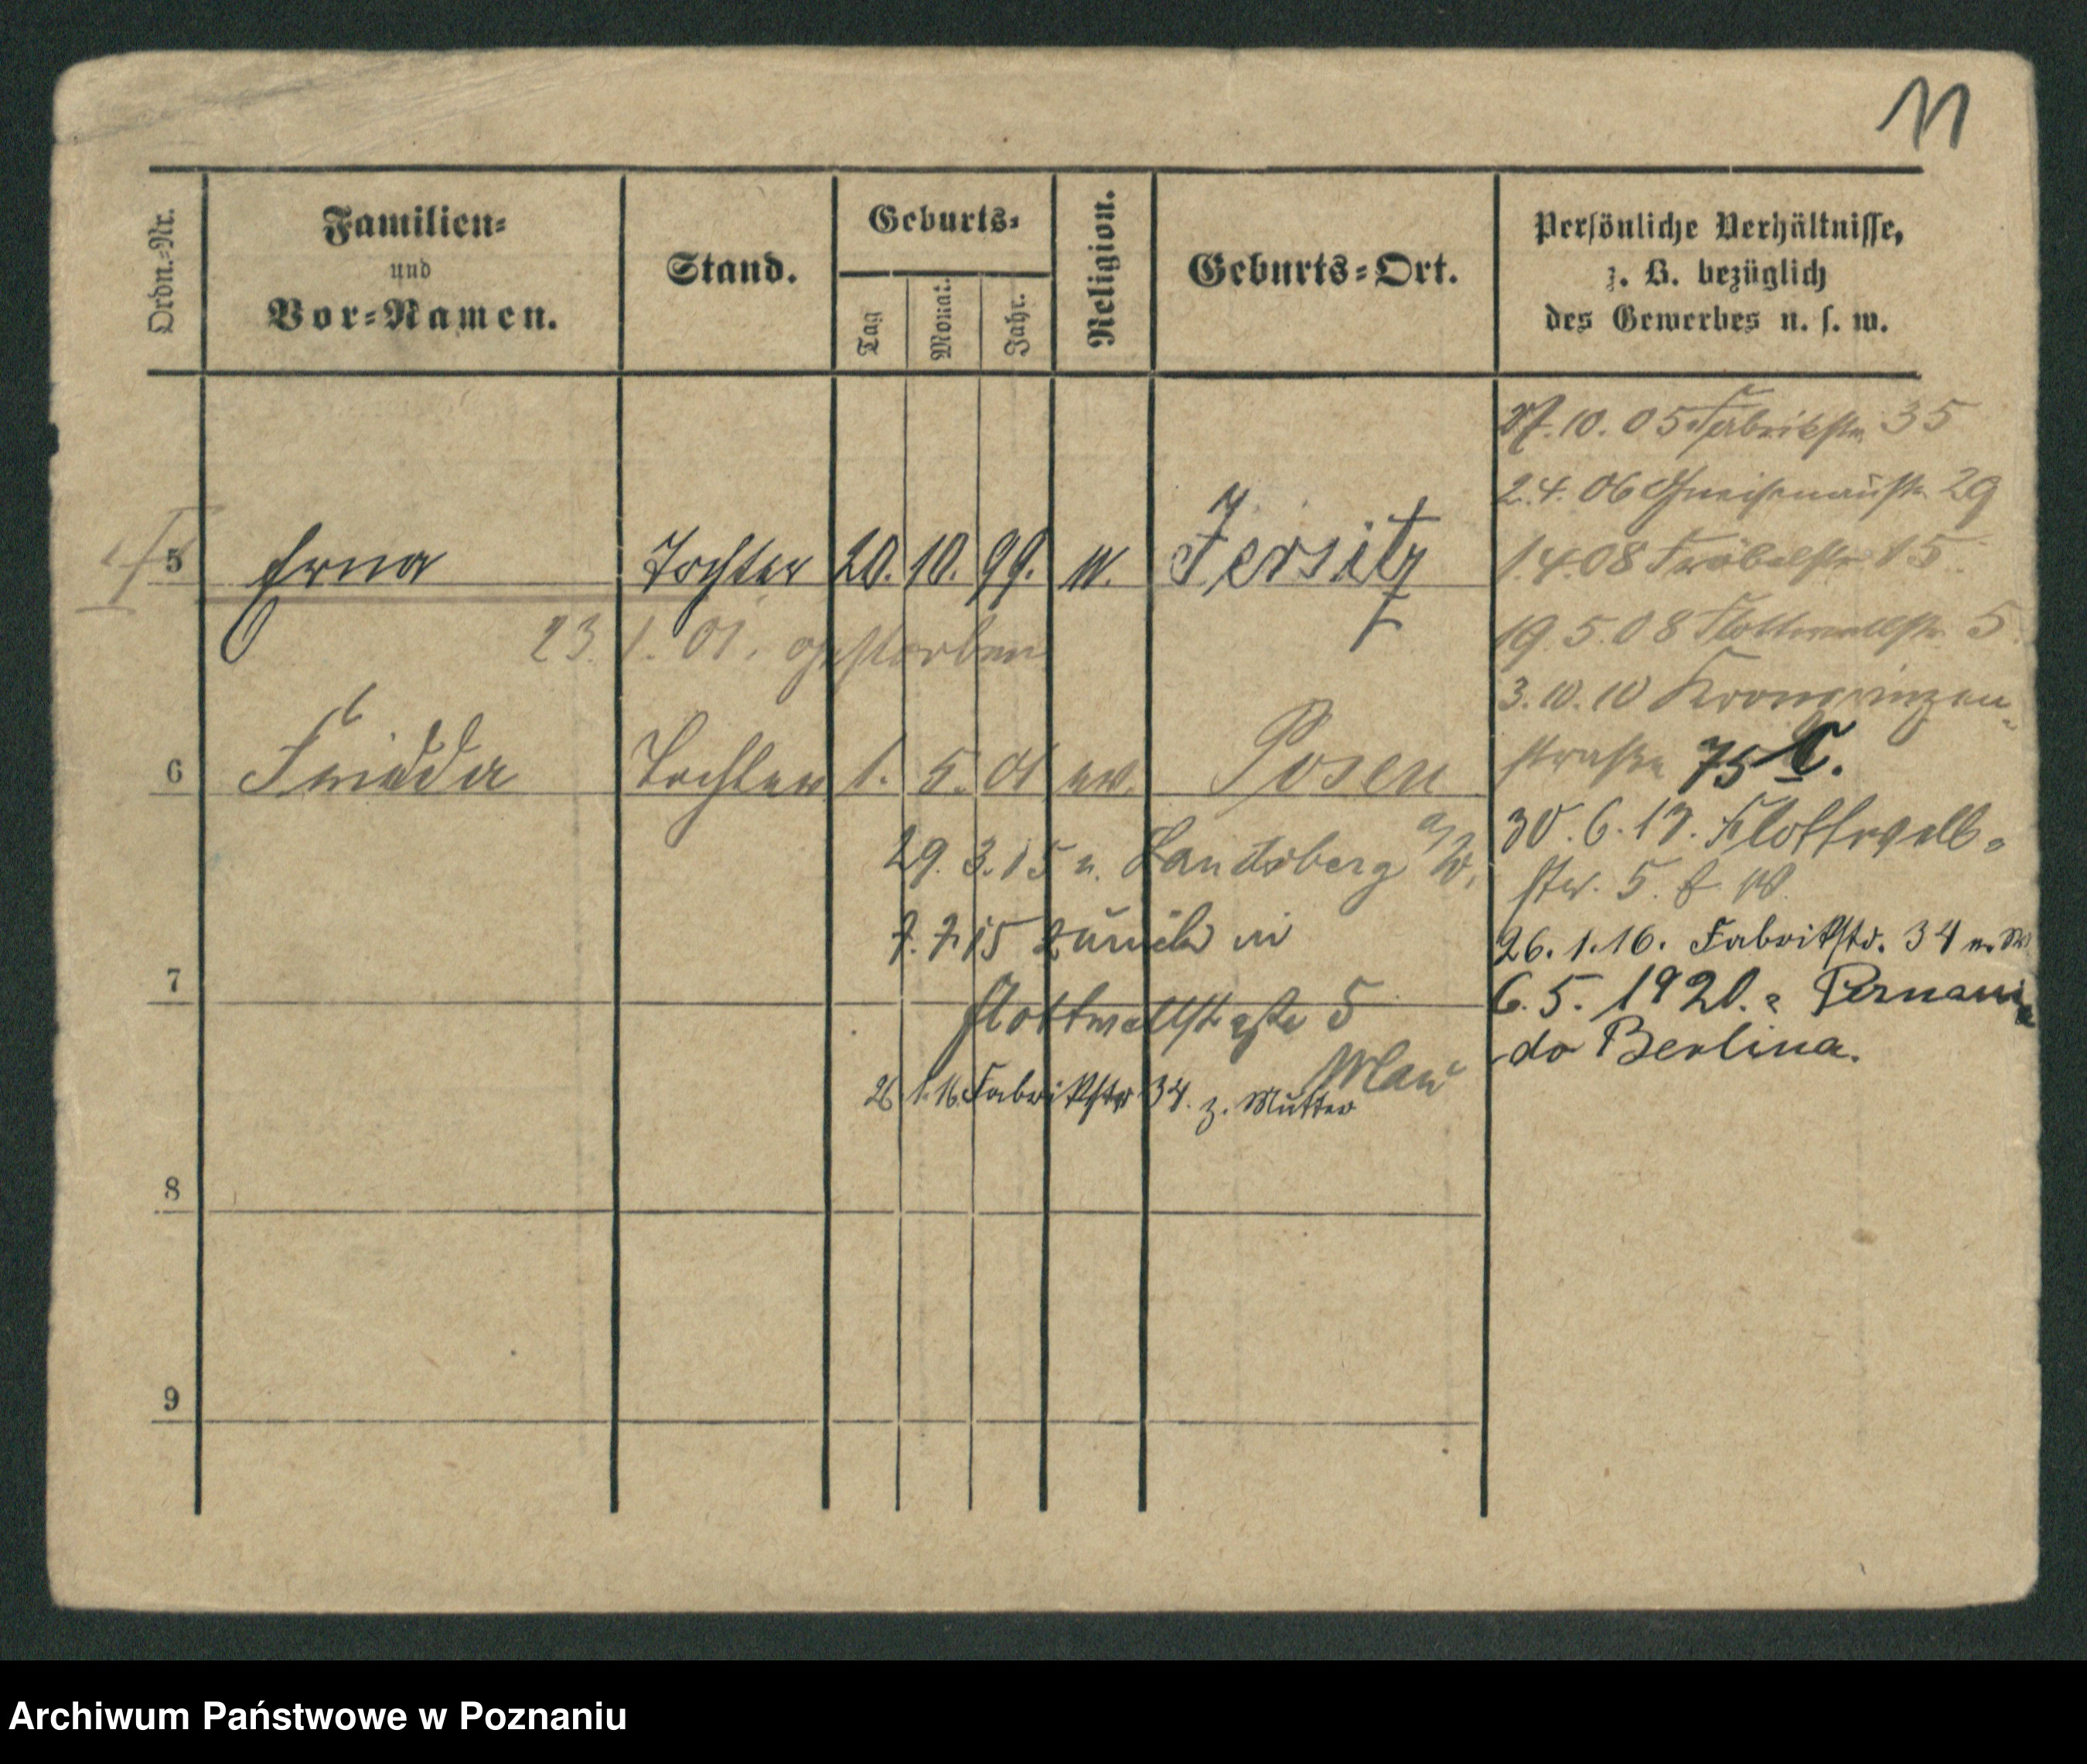 11
Ordn.-Nr.
Familien-
und
Vor-Namen.
Stand.
Geburts-
Tag
Monat.
Jahr.
Religion.
Geburts-Ort.
Persönliche Verhältnisse,
z. B. bezüglich
des Gewerbes u. s. w.
5 Erna Tochter 20. 10. 99. Jersitz
23. 1. 01. gestorben
6 Frieda Tochter 1. 5. 01 ev. Posen
29. 3. 15 n. Landsberg a/W.
7. 7. 15 zurück in
7
Flottwellstraße 5
26 1. 16. Fabrikstr 34. z. Mutter
8
9
27. 10. 05 Fabrikstr. 35
2. 4. 06 Gneisenaustr. 29
1. 4. 08 Fröbelstr. 15.
19. 5. 08 Flottwellstr. 5.
3. 10. 10 Kronprinzen-
straße 75
30. 6. 13. Flottwell-
str. 5.
26. 1. 16. Fabrikstr. 34
6. 5. 1920. z Poznania
do Berlina.
Archiwum Państwowe w Poznaniu